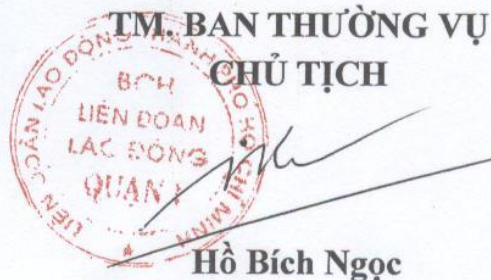 TM. BAN THƯỜNG VỤ
CHỦ TỊCH
LIÊN ĐOÀN LAO ĐỘNG THÀNH PHỐ HỒ CHÍ MINH
BCH
LIÊN ĐOAN
LAC ĐỘNG
QUẬN 1
Hồ Bích Ngọc